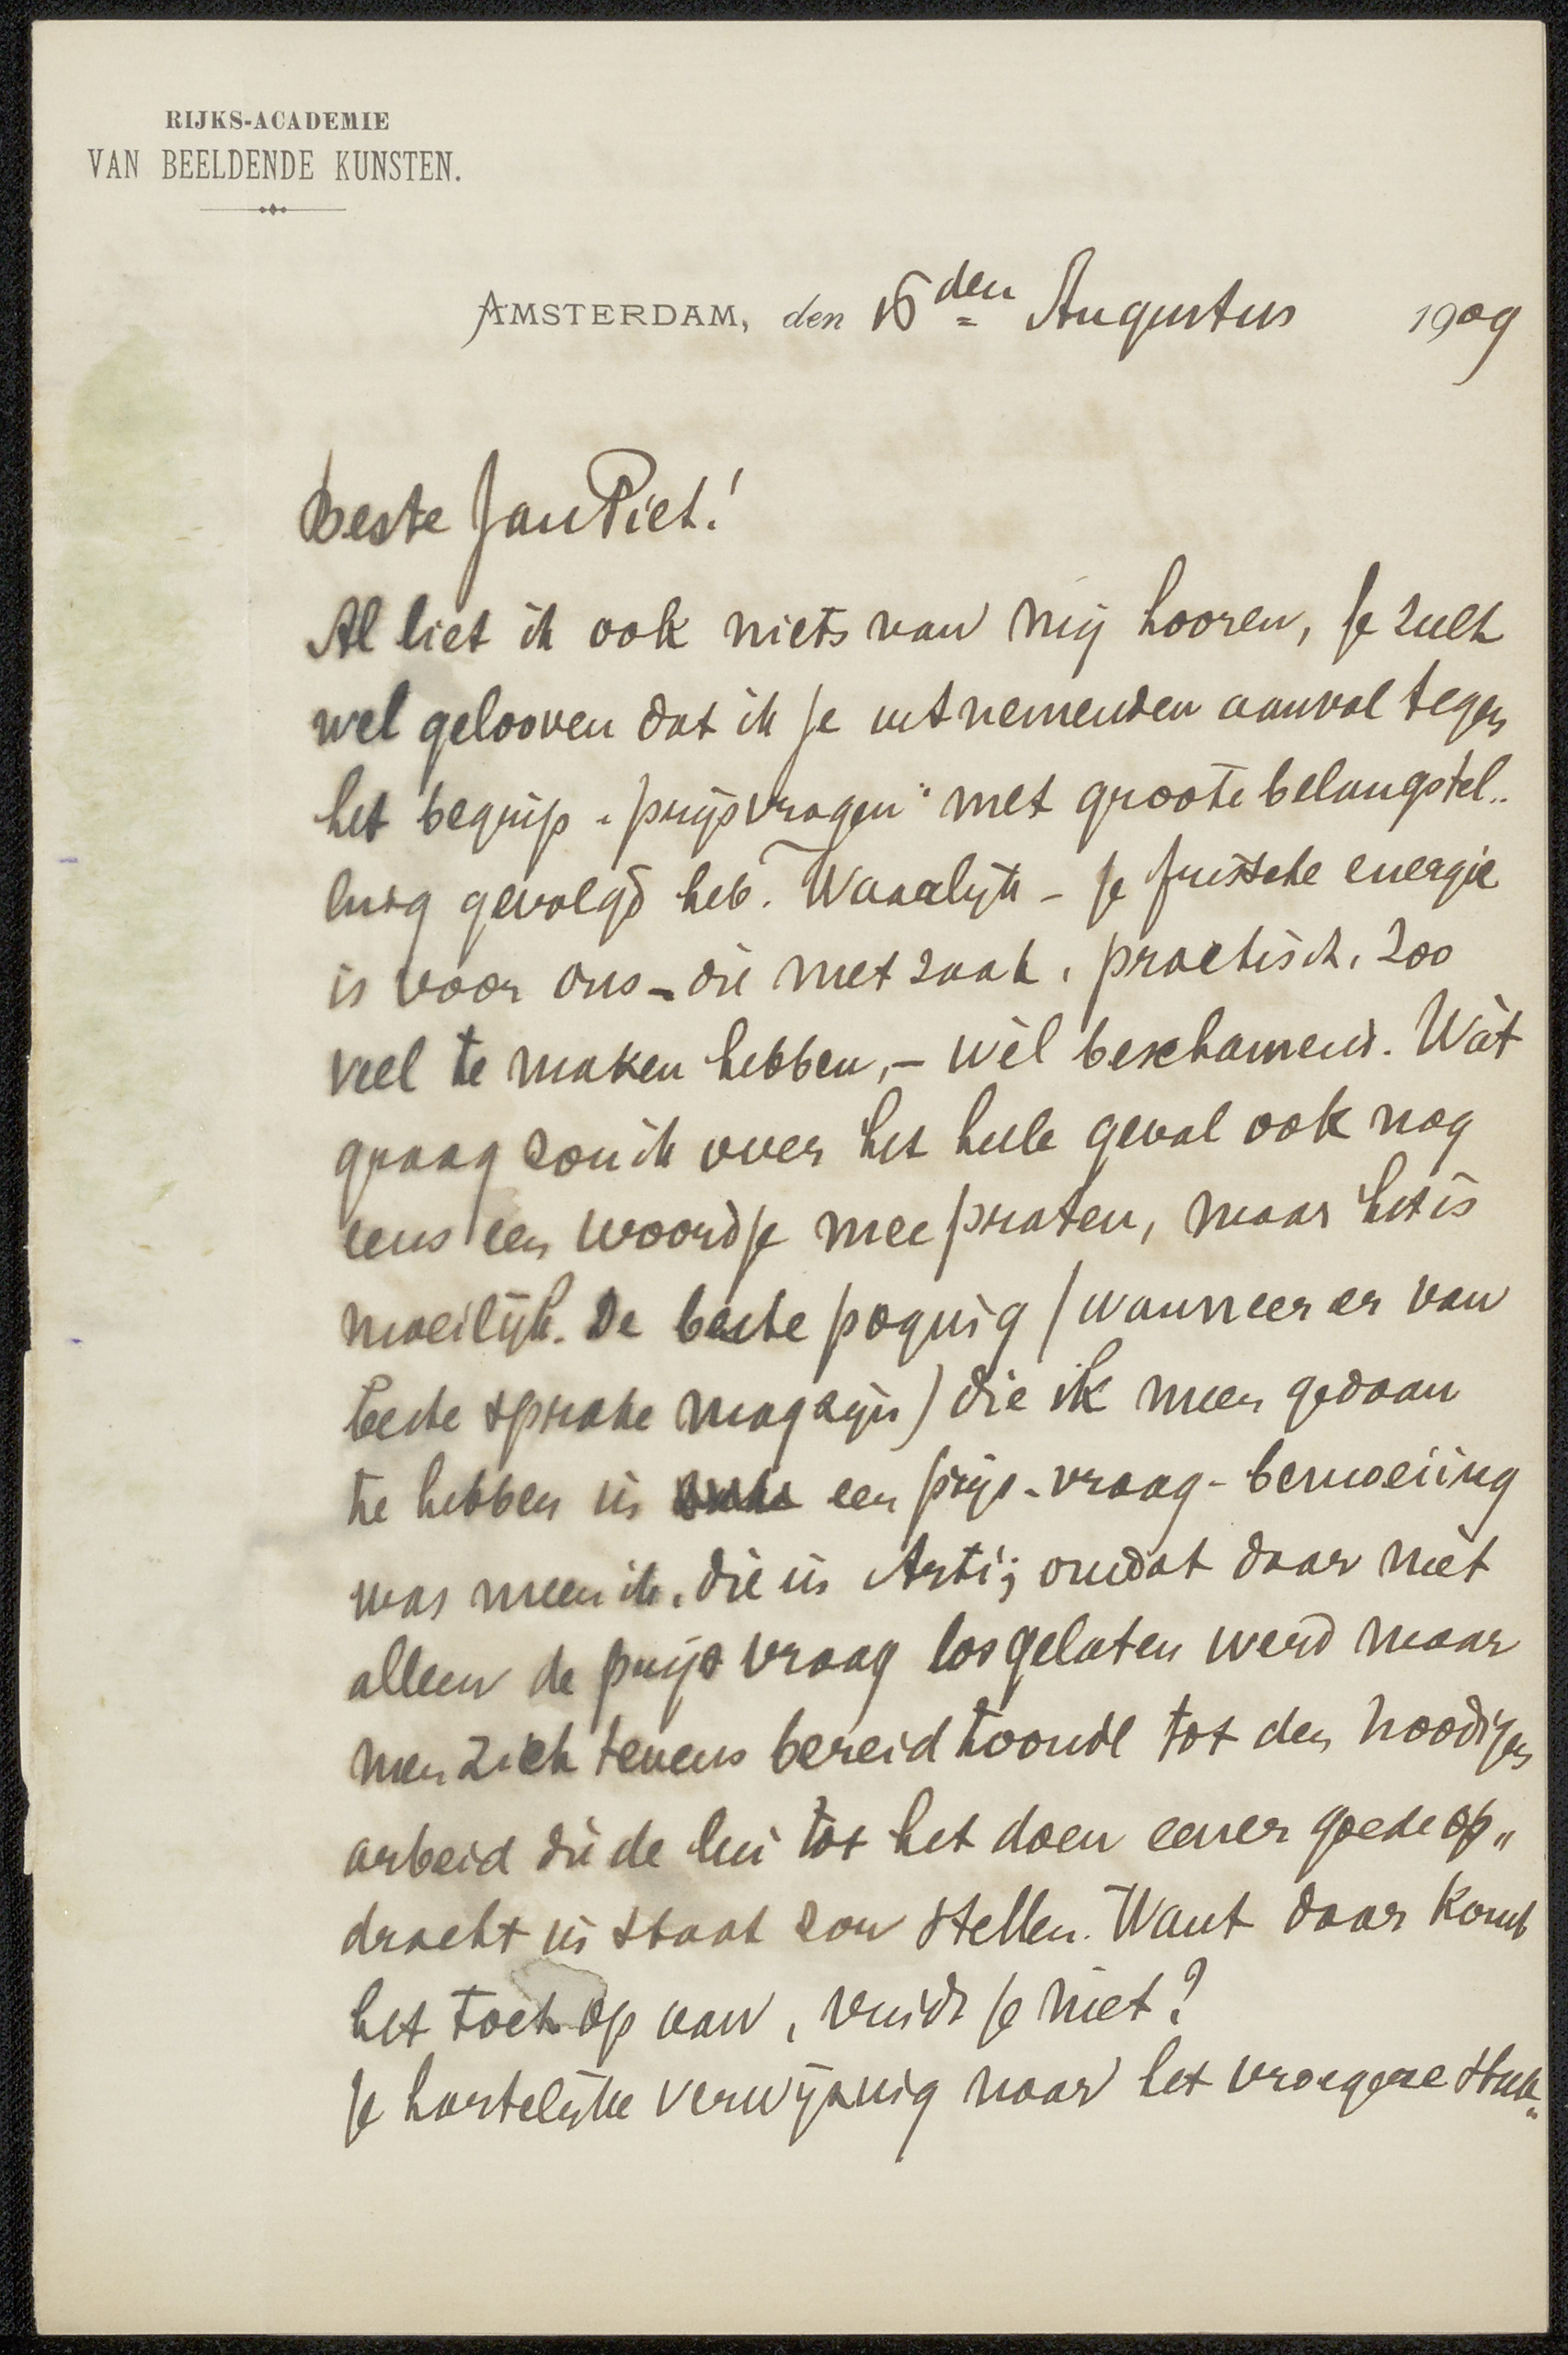 RIJKS-ACADEMIE
VAN BEELDENDE KUNSTEN.
AMSTERDAM, den 16den Augustus 1909
Beste Jan Piet!
Al liet ik ook niets van mij hooren, je zult
wel gelooven dat ik je uitnemenden aanval tegen
het begrip „prijsvragen" met groote belangstel„
ling gevolgd heb. Waarlijk - je frissche energie
is voor ons - die met zaak, practisch, zoo
veel te maken hebben, - wèl beschamend. Wàt
graag zou ik over het heele geval ook nog
eens een woordje meepraten, maar het is
moeilijk. De beste poging (wanneer er van
beste sprake mag zijn) die ik meen gedaan
te hebben in een prijs-vraag-bemoeiing
was meen ik, die in Arti; omdat daar niet
alleen de prijsvraag losgelaten werd maar
men zich tevens bereid toonde tot den noodigen
arbeid die de lui tot het doen eener goede op„
dracht in staat zou stellen. Want daar komt
het toch op aan, vindt je niet?
Je hartelijke verwijzing naar het vroegere stuk„